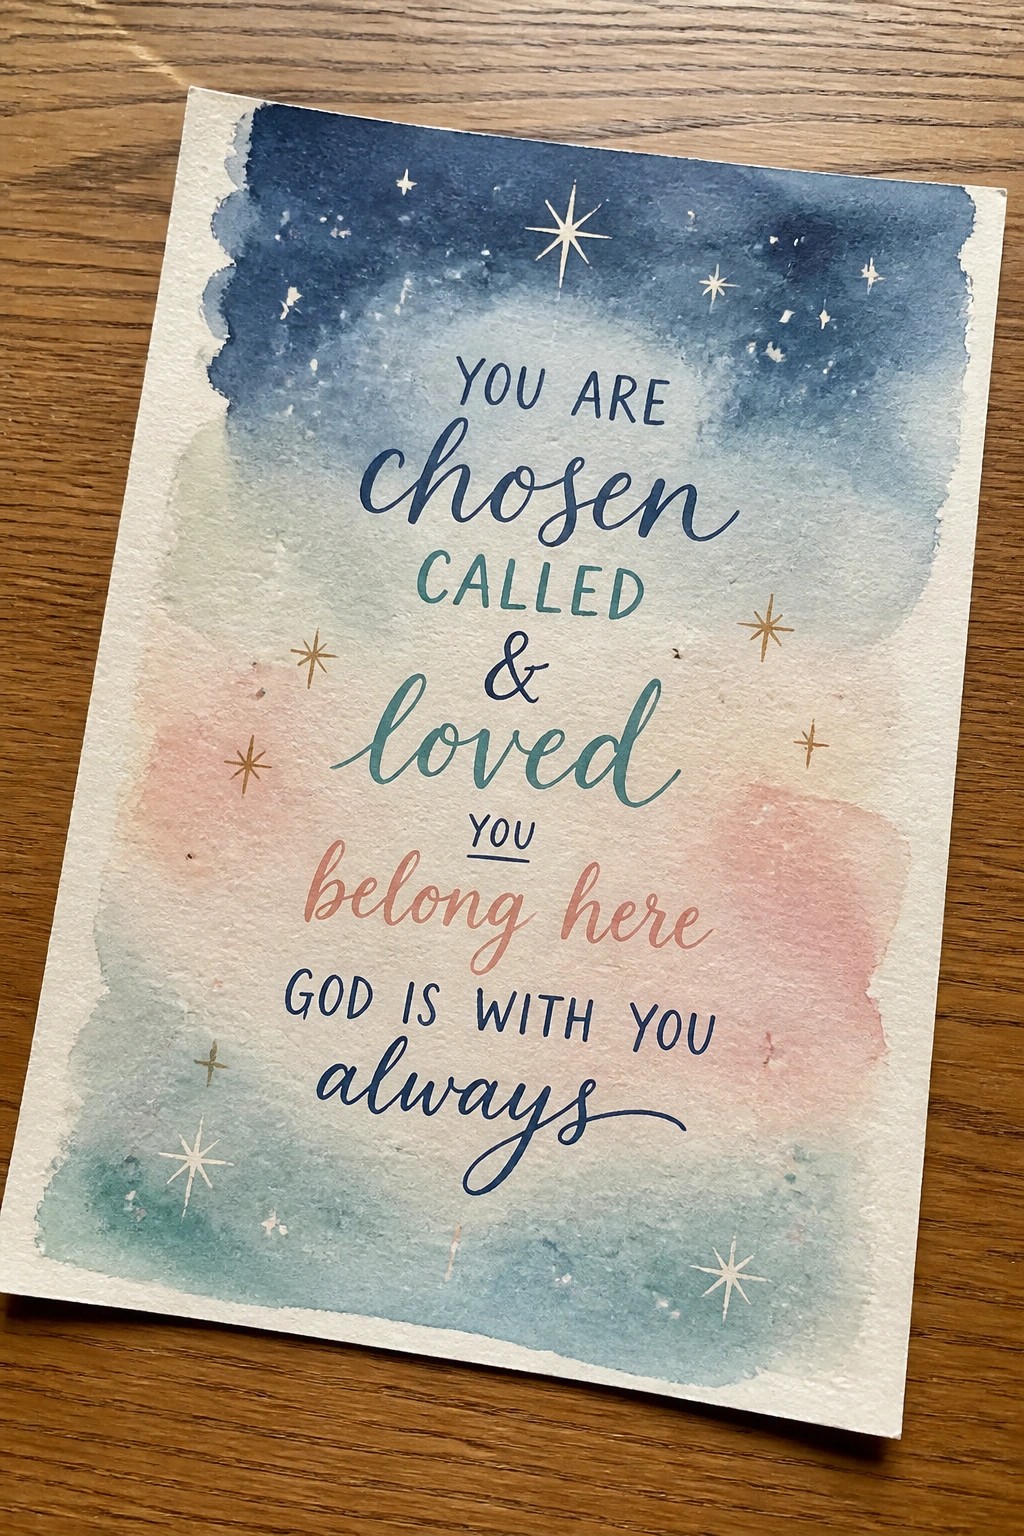 YOU ARE
chosen
CALLED
&
loved
YOU
belong here
GOD IS WITH YOU
always